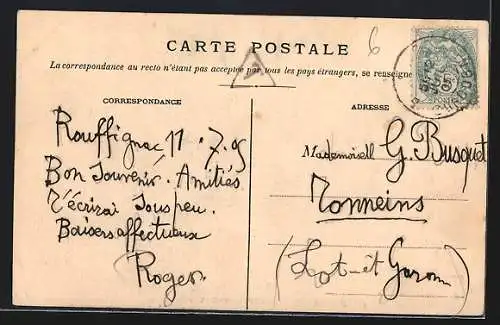 CARTE POSTALE
6
A
La correspondance au recto n'étant pas acceptée par tous les pays étrangers, se renseigner
CORRESPONDANCE
ADRESSE
Rouffignac 11.7.05
Bon Souvenir. Amitiés
T'écrirai sous peu.
Baisers affectueux
Roger
Mademoiselle G. Busquet
Tonneins
(Lot-et-Garonne)
5